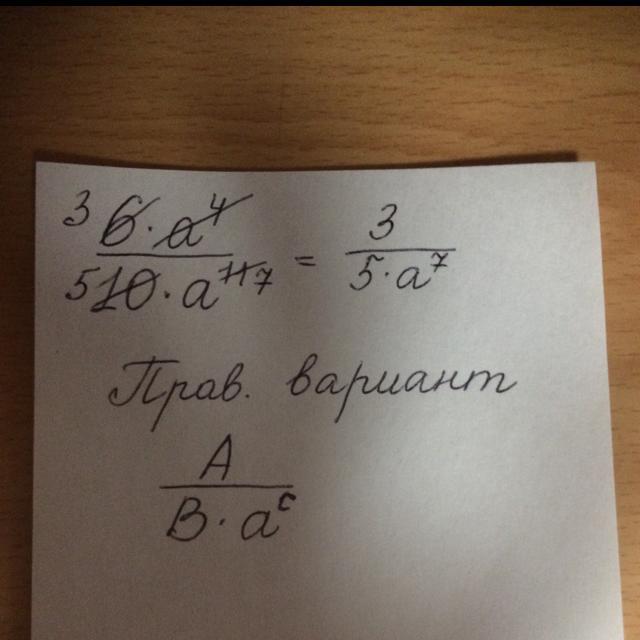 3 6 · a⁴ / 5 10 · a¹¹ 7 = 3 / 5 · a⁷
Прав. вариант
A / B · aᶜ